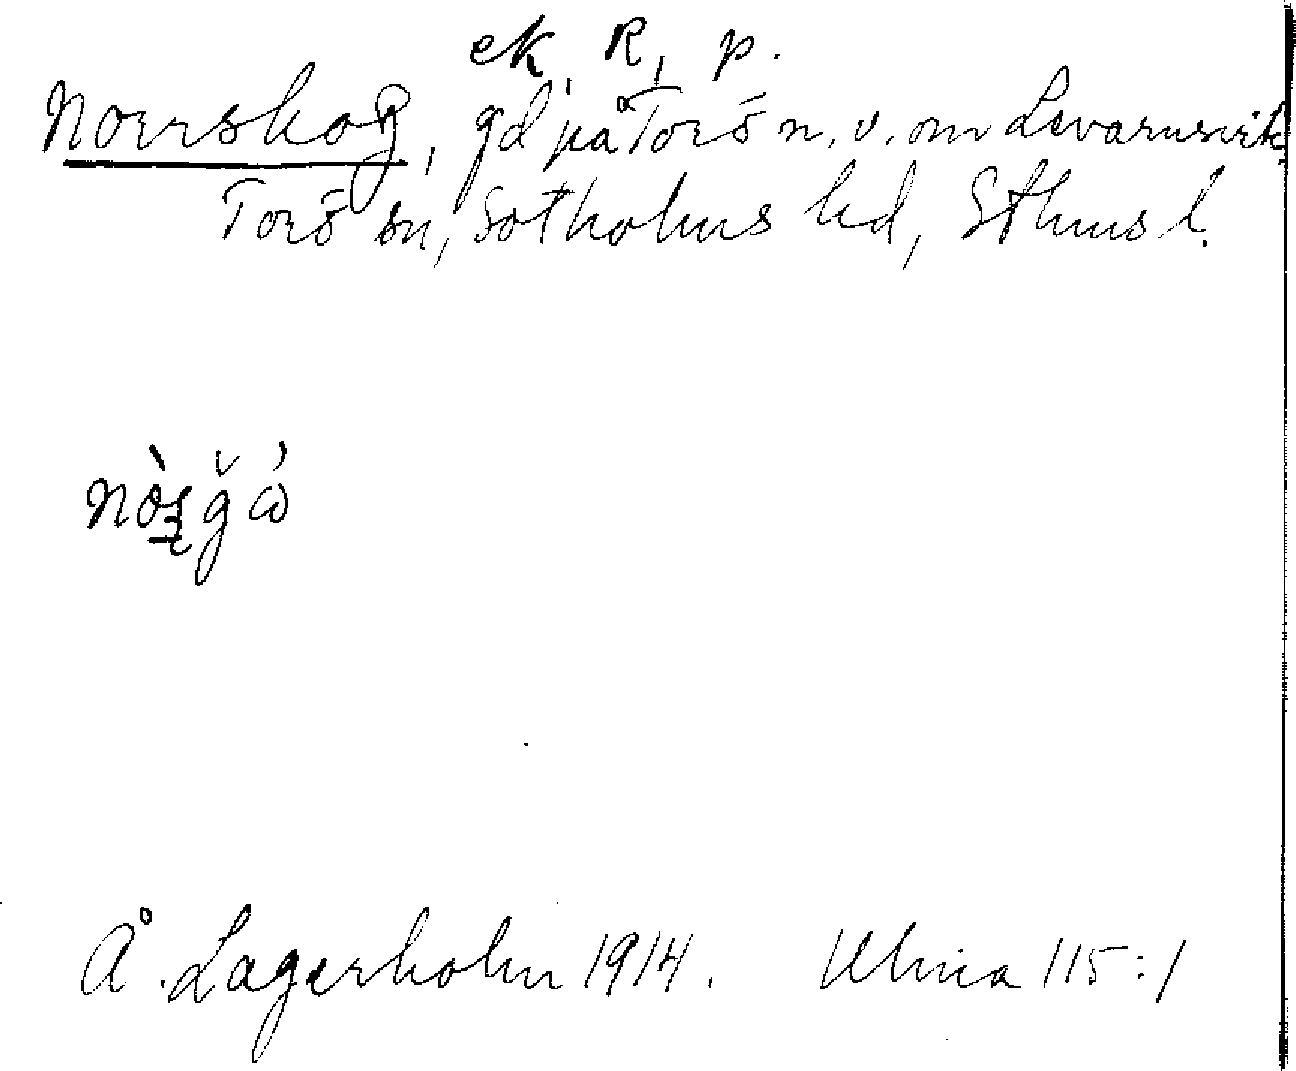 ek, R, p.
Norrskog, gd på Torö n.v. om Svärdsvik
Torö sn, Sotholms hd, Sthms l.
Å. Lagerholm 1914. Ulma 115:1